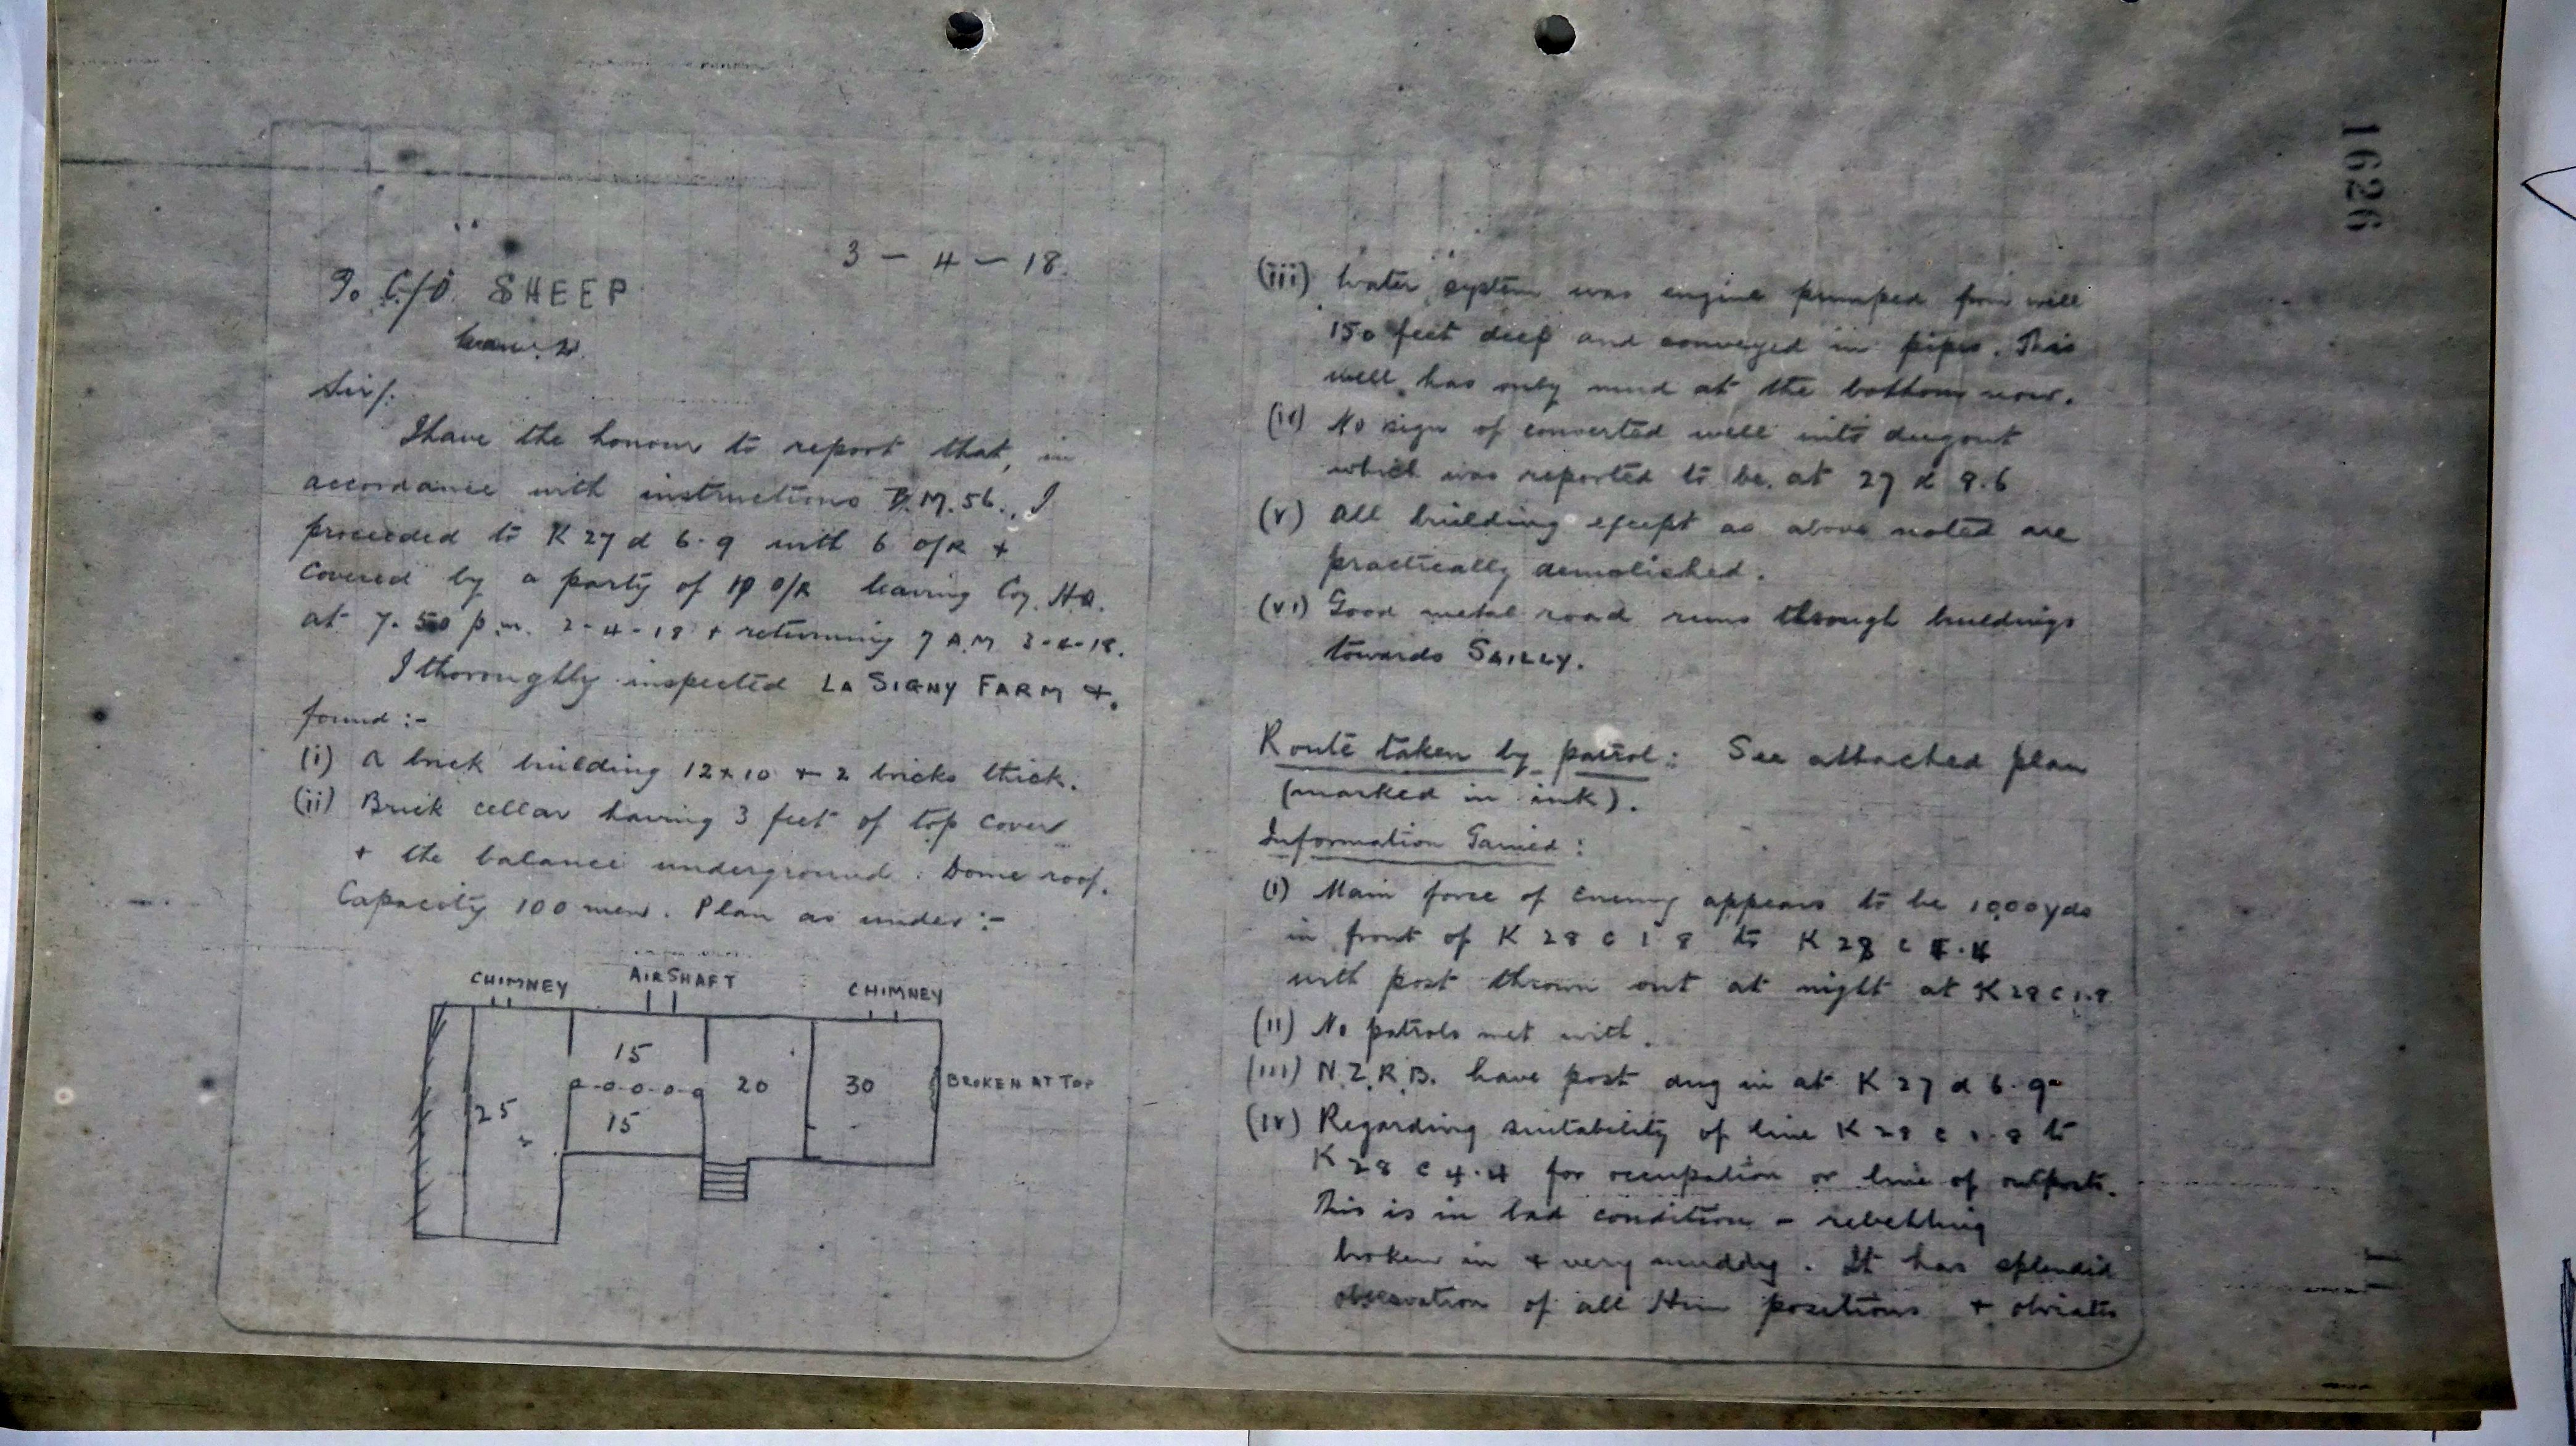 3 - 4 - 18.
To C/O SHEEP
Sir/.
I have the honour to report that, in
accordance with instructions B.M. 56., I
proceeded to K 27 d 6.9 with 6 O/R +
covered by a party of 10 O/R leaving Coy. H.Q.
at 7.50 p.m. 2-4-18 + returning 7 A.M 3-4-18.
I thoroughly inspected LA SIGNY FARM +
found :-
(i) A brick building 12 x 10 + 2 bricks thick.
(ii) Brick cellar having 3 feet of top cover
+ the balance underground. Dome roof.
Capacity 100 men. Plan as under :-
CHIMNEY AIRSHAFT CHIMNEY
15
25 20 30 BROKEN AT TOP
15
(iii) Water system was engine pumped from well
150 feet deep and conveyed in pipes. This
well has only mud at the bottom now.
(iv) No sign of converted well into dugout
which was reported to be at 27 d 9.6
(v) All building except as above noted are
practically demolished.
(vi) Good metal road runs through buildings
towards SAILLY.
Route taken by patrol: See attached plan
(marked in ink).
Information Gained:
(i) Main force of enemy appears to be 1000 yds
in front of K 28 c 1 8 to K 28 c 4.4
with post thrown out at night at K 28 c 1.8
(ii) No patrols met with.
(iii) N.Z.R.B. have post dug in at K 27 d 6.9
(iv) Regarding suitability of line K 28 c 1.8 to
K 28 c 4.4 for occupation or line of outposts.
This is in bad condition - rebetting
broken in + very muddy. It has splendid
observation of all Hun positions + obviates
1626